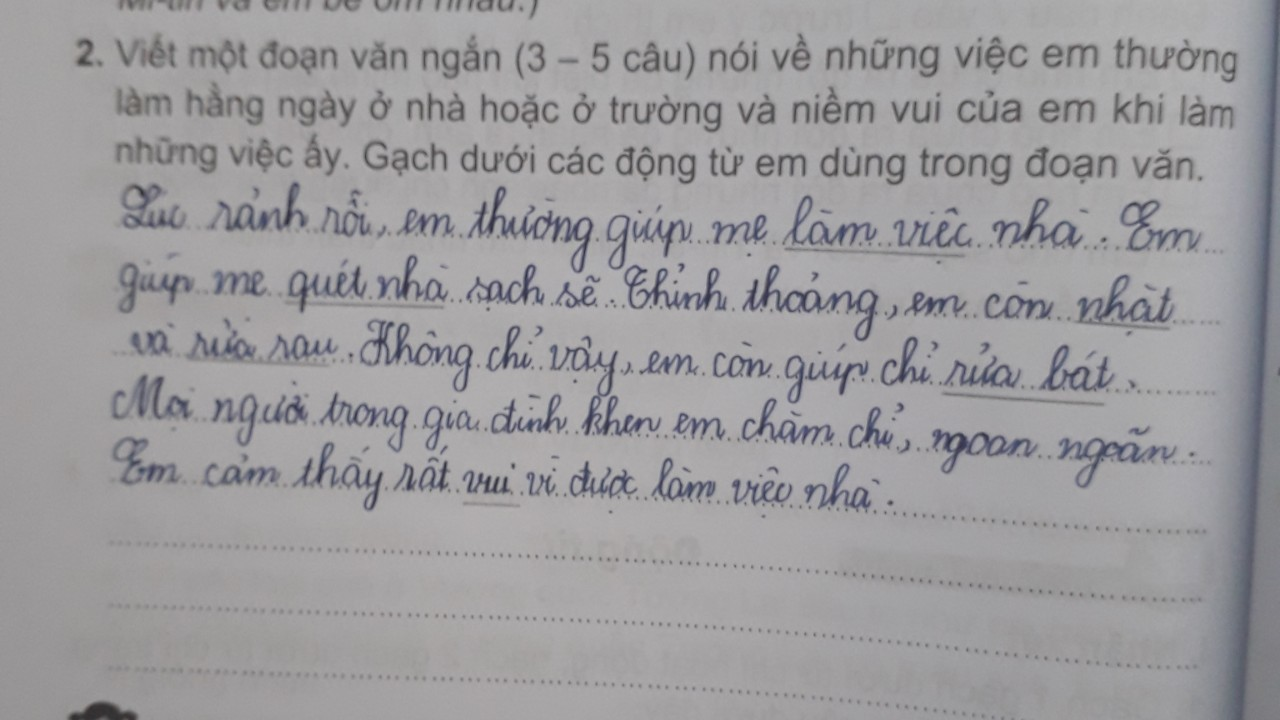 Mi-tin và em bé ôm nhau.)
2. Viết một đoạn văn ngắn (3 – 5 câu) nói về những việc em thường
làm hằng ngày ở nhà hoặc ở trường và niềm vui của em khi làm
những việc ấy. Gạch dưới các động từ em dùng trong đoạn văn.
Lúc rảnh rỗi, em thường giúp mẹ làm việc nhà. Em
giúp mẹ quét nhà sạch sẽ. Thỉnh thoảng, em còn nhặt
và rửa rau. Không chỉ vậy, em còn giúp chỉ rửa bát.
Mọi người trong gia đình khen em chăm chỉ, ngoan ngoãn.
Em cảm thấy rất vui vì được làm việc nhà.